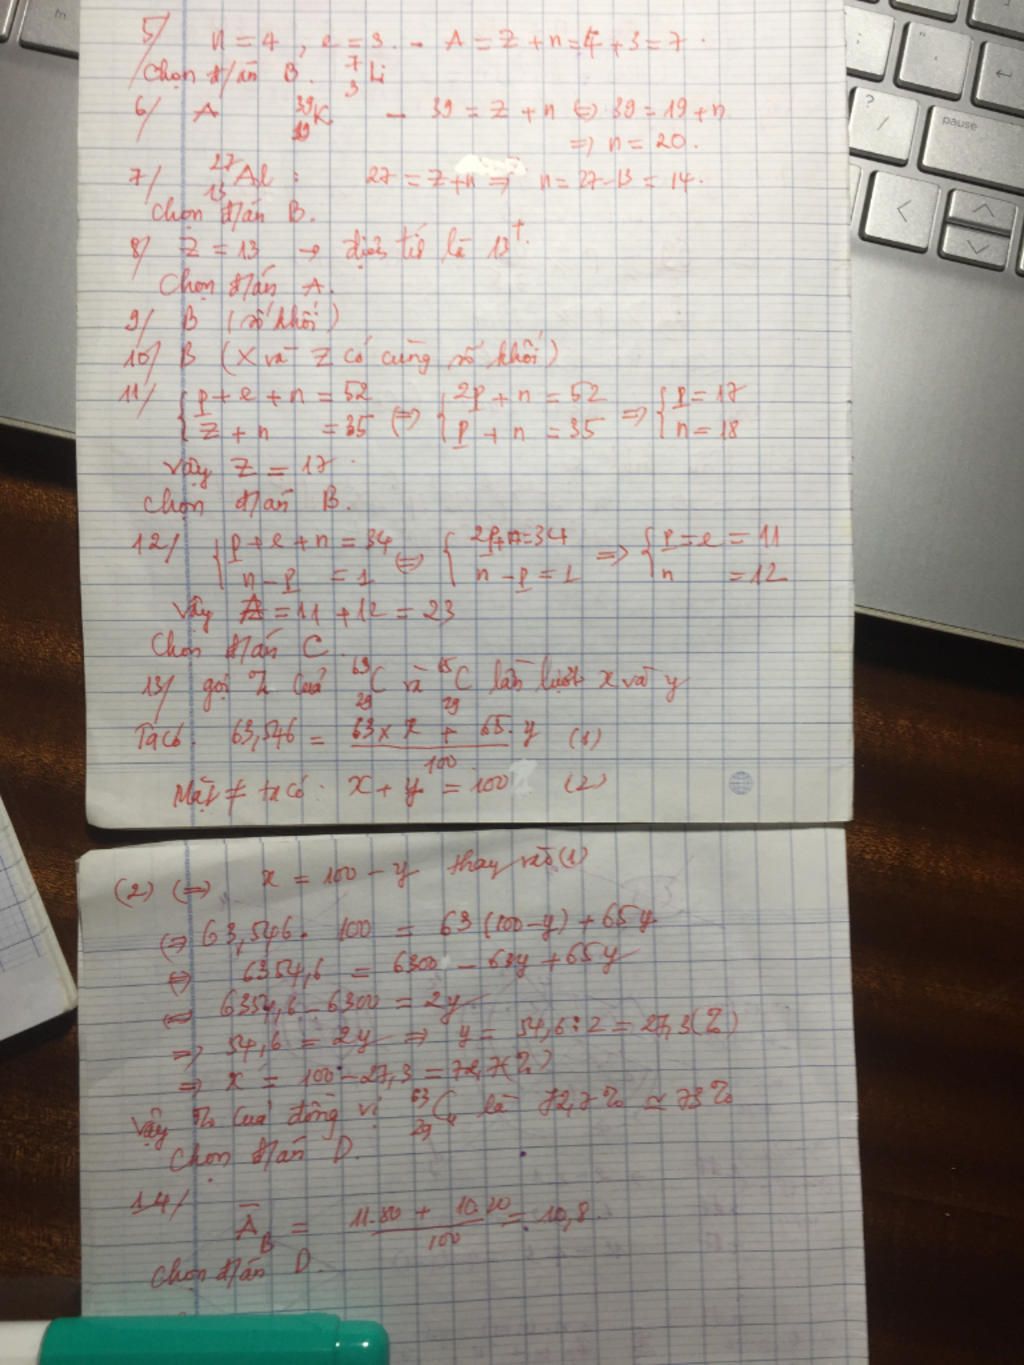 5/ n = 4 , e = 3. - A = Z + n = 4 + 3 = 7.
Chọn đ/án B. ⁷₃Li
6/ A ³⁹₁₉K - 39 = Z + n ⇔ 39 = 19 + n
⇒ n = 20.
7/ ²⁷₁₃Al : 27 = Z + n ⇒ n = 27 - 13 = 14.
Chọn đ/án B.
8/ Z = 13 → điện tử là 13⁺.
Chọn đ/án A.
9/ B (số khối)
10/ B (X và Z có cùng số khối)
11/ { p + e + n = 52 ⇔ { 2p + n = 52 ⇒ { p = 17
Z + n = 35 p + n = 35 n = 18
Vậy Z = 17.
Chọn đ/án B.
12/ { p + e + n = 34 ⇔ { 2p + n = 34 ⇒ { p = e = 11
n - p = 1 n - p = 1 n = 12
Vậy A = 11 + 12 = 23
Chọn đ/án C.
13/ gọi % của ⁶³₂₉C và ⁶⁵₂₉C lần lượt x và y
Ta có. 63,546 = 63 × x + 65.y (1)
100
Mặt ≠ ta có : x + y = 100 (2)
(2) ⇔ x = 100 - y thay vào (1)
⇔ 63,546. 100 = 63 (100 - y) + 65y
⇔ 6354,6 = 6300 - 63y + 65y
⇔ 6354,6 - 6300 = 2y
⇒ 54,6 = 2y ⇒ y = 54,6 : 2 = 27,3 (%)
⇒ x = 100 - 27,3 = 72,7 (%)
Vậy % của đồng vị ⁶³₂₉Cu là 72,7% ≃ 73%
Chọn đ/án D.
14/
A̅B = 11.80 + 10.20 = 10,8.
100
Chọn đ/án D.
pause